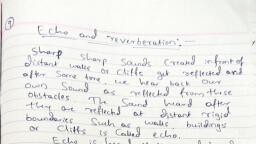 Echo and reverberation:-
Sharp Sharp Sounds Created infront of
distant walls or cliffs get reflected and
after some time. we hear back our
own Sound as reflected from these
obstacles. The Sound heard after
they are reflected at distant rigid
boundaries Such as walls, buildings
or Cliffs is Called echo.
Echo is